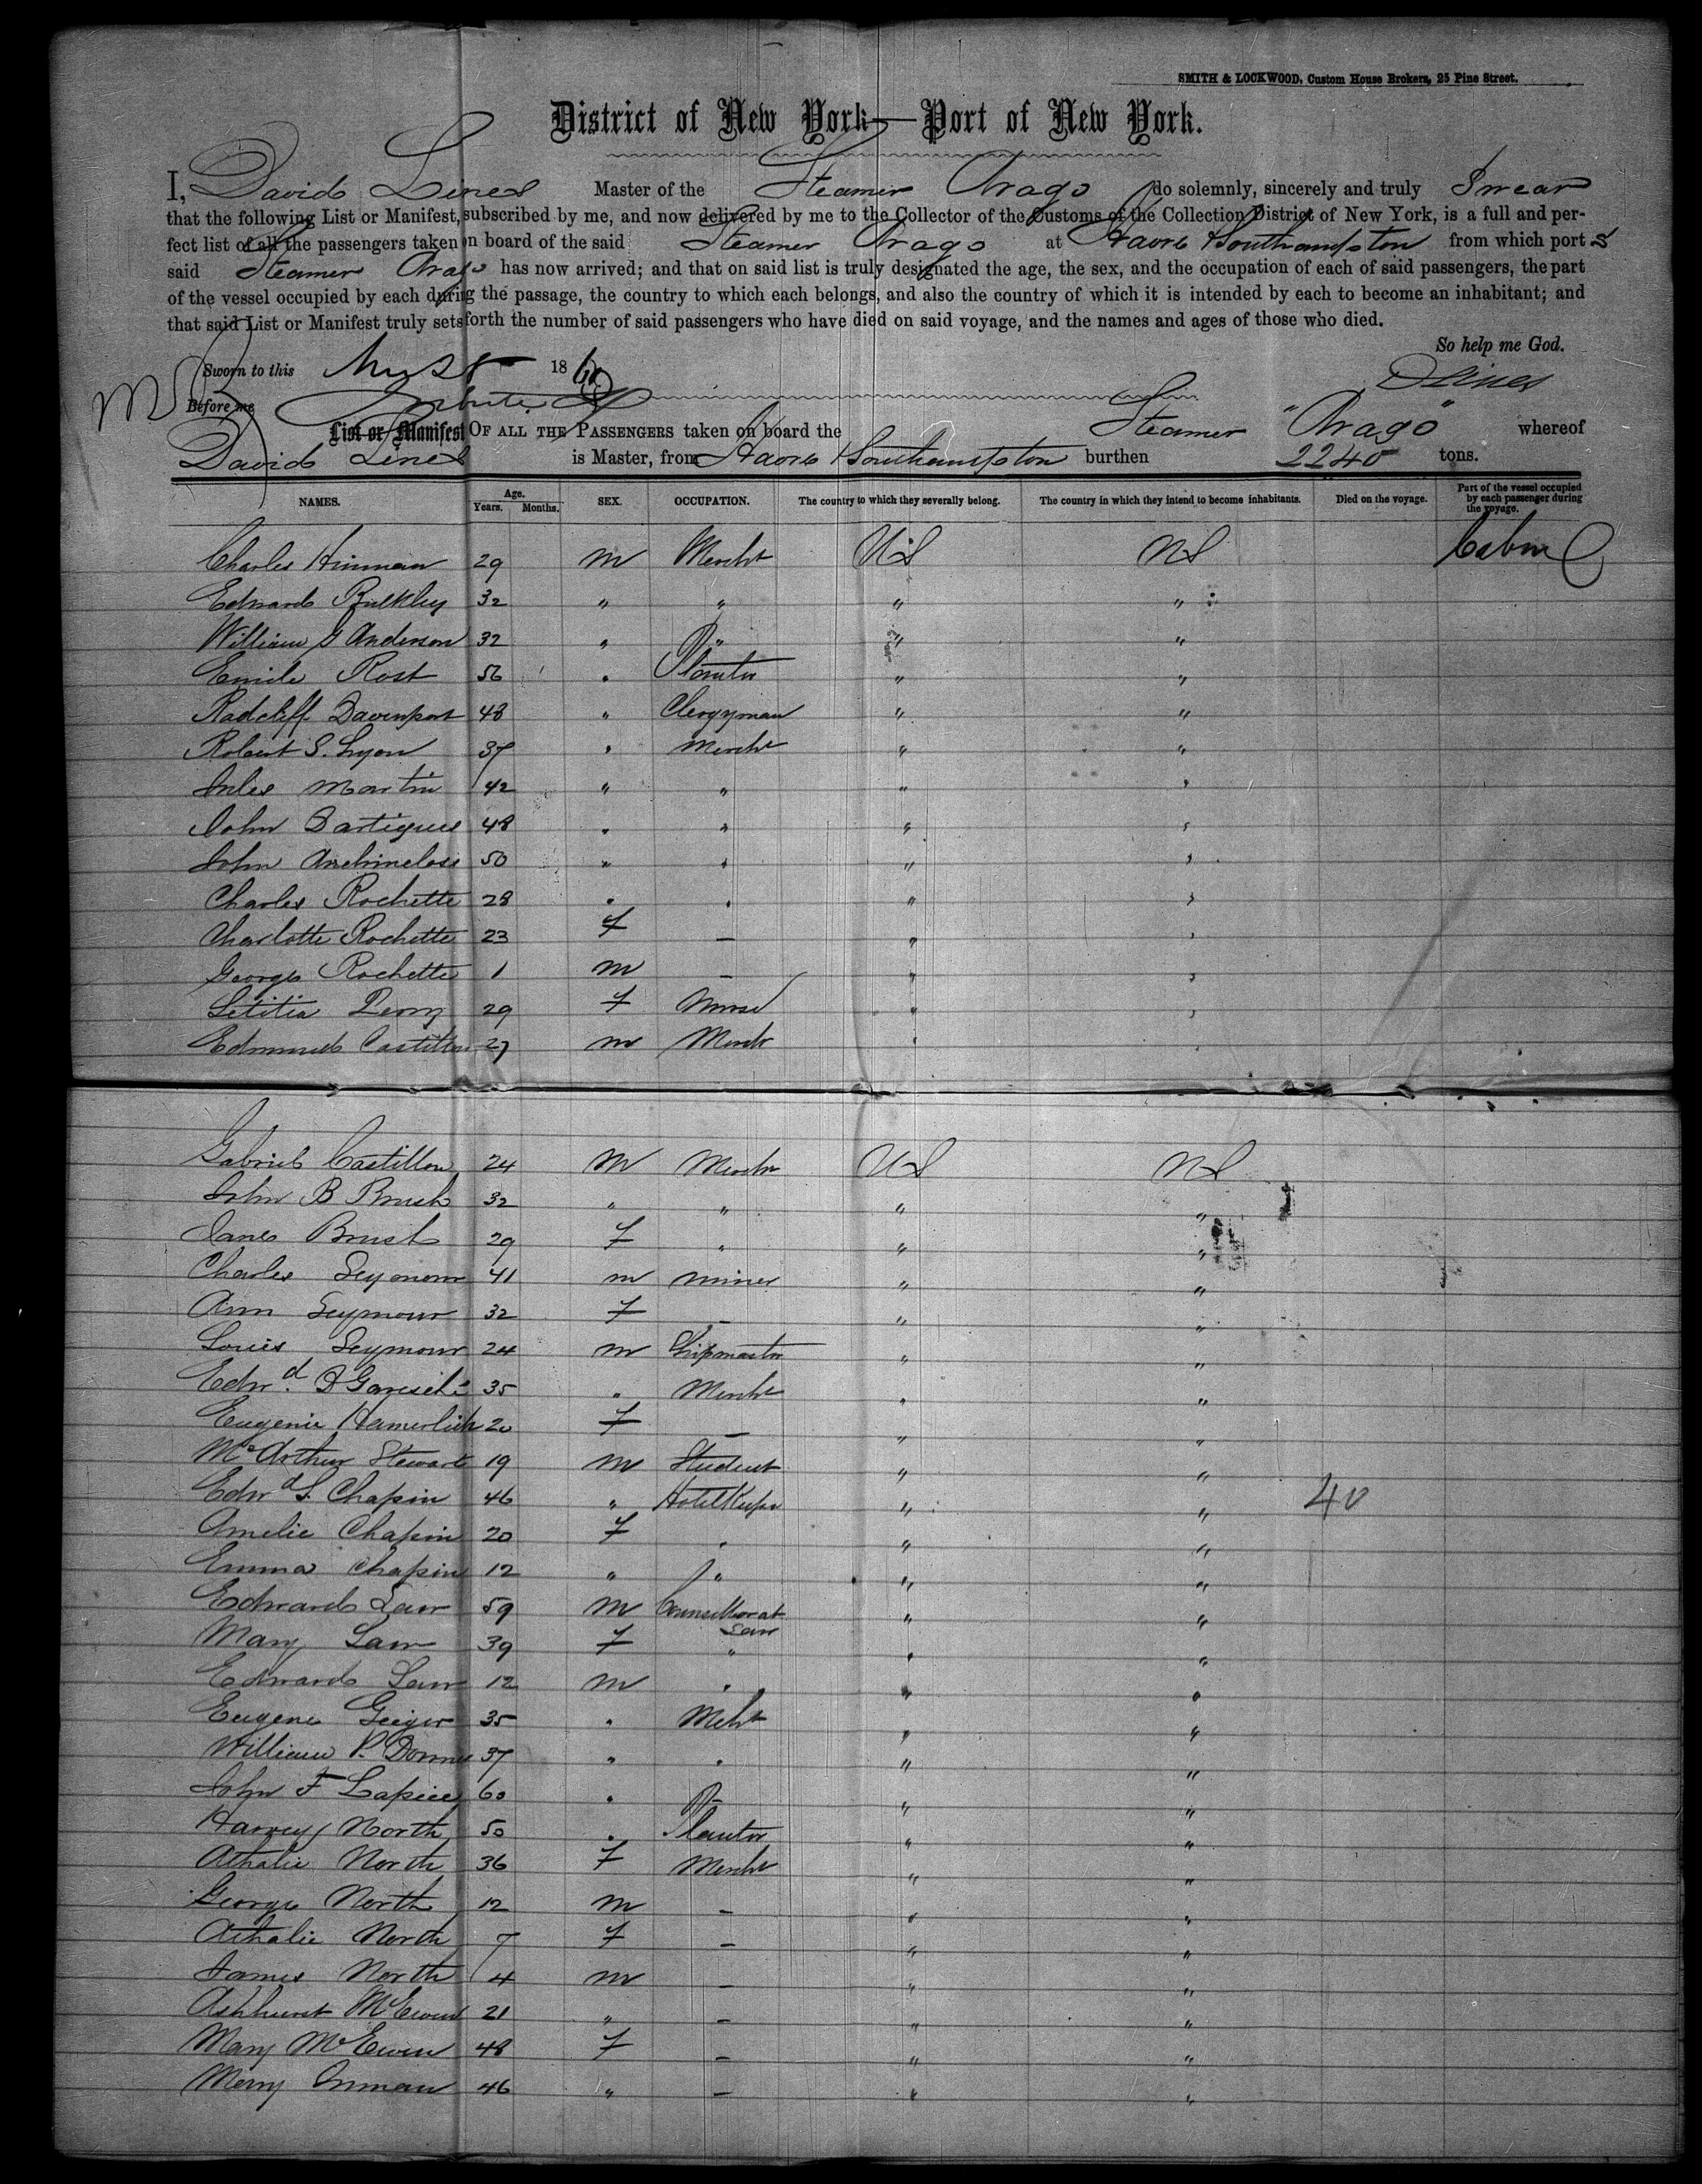 SMITH & LOCKWOOD, Custom House Brokers, 25 Pine Street.
District of New York—Port of New York.
I, David Lines Master of the Steamer Arago do solemnly, sincerely and truly Swear
that the following List or Manifest, subscribed by me, and now delivered by me to the Collector of the Customs of the Collection District of New York, is a full and per-
fect list of all the passengers taken on board of the said Steamer Arago at Havre & Southampton from which port s
said Steamer Arago has now arrived; and that on said list is truly designated the age, the sex, and the occupation of each of said passengers, the part
of the vessel occupied by each during the passage, the country to which each belongs, and also the country of which it is intended by each to become an inhabitant; and
that said List or Manifest truly sets forth the number of said passengers who have died on said voyage, and the names and ages of those who died.
So help me God.
Sworn to this 1860
D Lines
Before me
List or Manifest OF ALL THE PASSENGERS taken on board the Steamer "Arago" whereof
David Lines is Master, from Havre & Southampton burthen 2240 tons.
NAMES. Age. Years. Months. SEX. OCCUPATION. The country to which they severally belong. The country in which they intend to become inhabitants. Died on the voyage. Part of the vessel occupied by each passenger during the voyage.
Charles Hinman 29 m Mercht US US Cabin
Edward Bulkley 32 " " " "
William G Anderson 32 " " " "
Emile Rost 56 " Planter " "
Radcliff Davenport 48 " Clergyman " "
Robert S. Lyon 37 " Mercht " "
Jules Martin 42 " " " "
John Bartigues 48 " " " "
John 50 " " " "
Charles Rochette 28 " " " "
Charlotte Rochette 23 f — " "
George Rochette 1 m — " "
Letitia Perry 29 f Nurse " "
Edmund Castillon 27 m Mercht " "
Gabriel Castillon 24 m Mercht US US
John B Brush 32 " " " "
Jane Brush 29 f " " "
Charles Seymour 41 m miner " "
Ann Seymour 32 f — " "
Louis Seymour 24 m Shipmaster " "
Edwd. Garesché 35 " Mercht " "
Eugenie 20 f — " "
McArthur Stewart 19 m Student " "
Edwd S. Chapin 46 " Hotel Keeper " " 40
Amelie Chapin 20 f " " "
Emma Chapin 12 " " " "
Edward Law 59 m Counsellor at Law " "
Mary Law 39 f " " "
Edward Law 12 m " " "
Eugene Geiger 35 " Mcht " "
William P. 37 " " " "
John F Lapice 60 " " "
Harvey North 50 " Planter " "
Athalie North 36 f Mercht " "
George North 12 m — " "
Athalie North 7 f — " "
James North 4 m — " "
Ashhurst McEwen 21 " — " "
Mary McEwen 48 f — " "
Mary Inman 46 " — " "